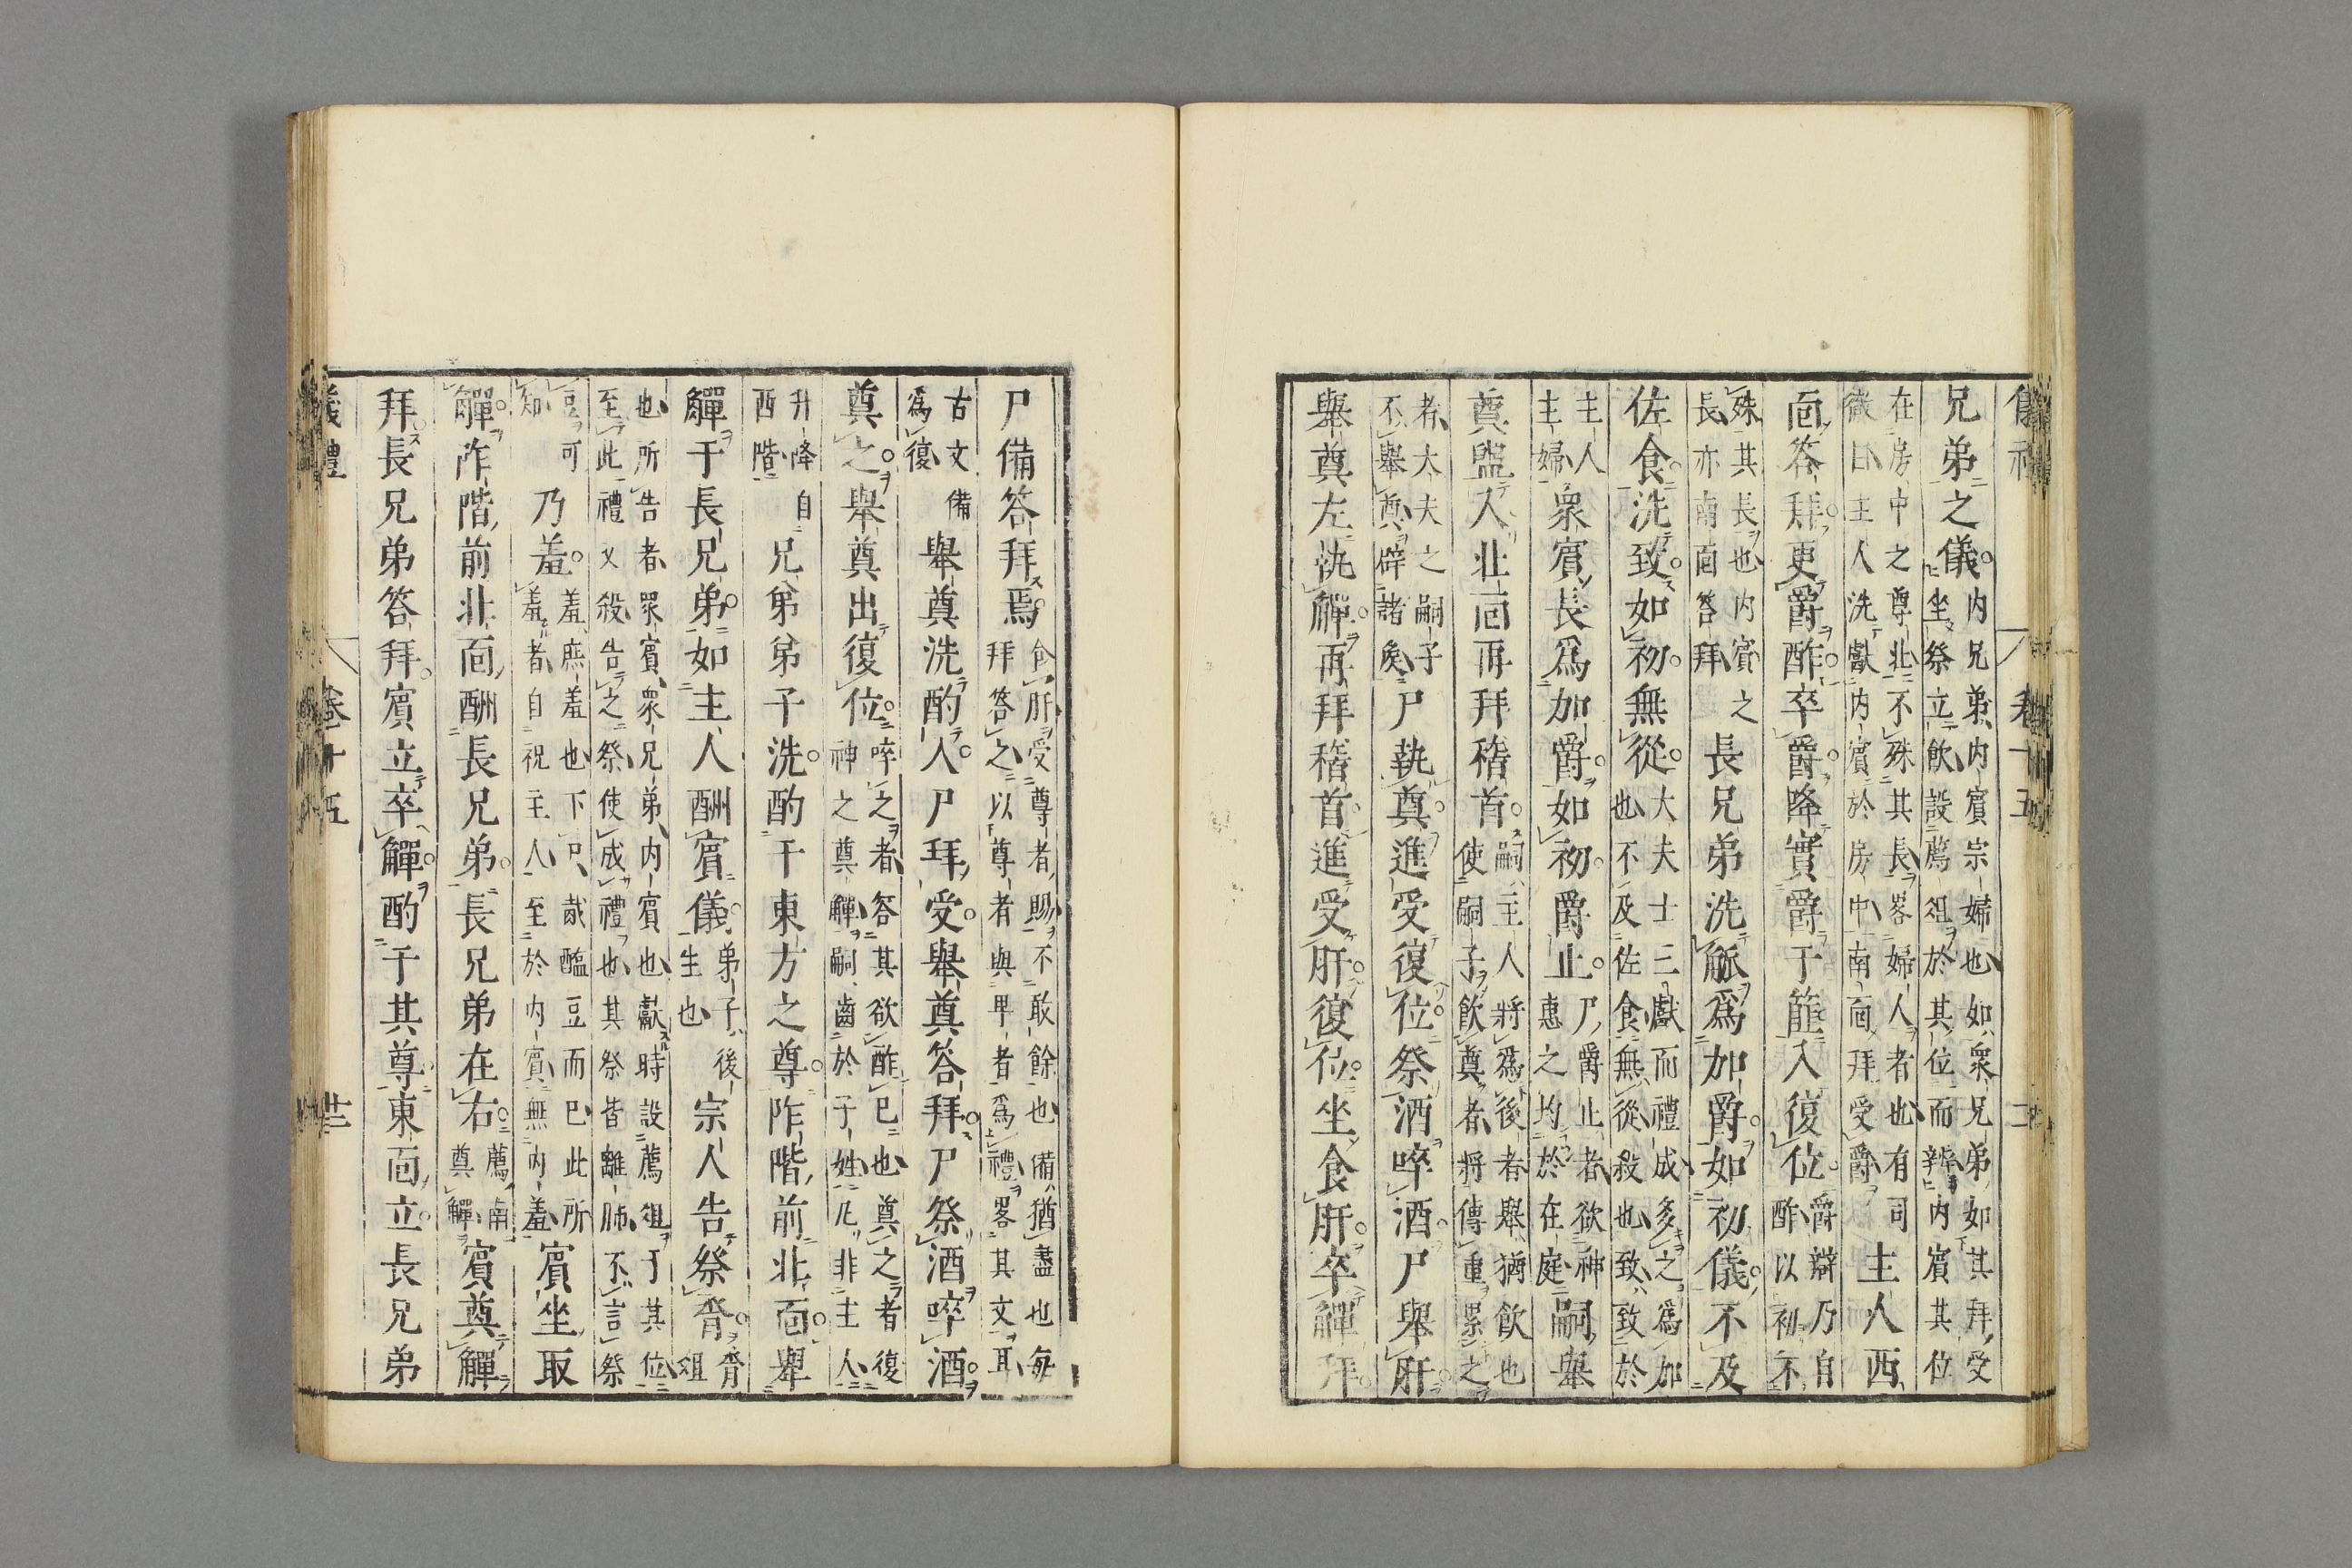 兄弟之儀内兄弟内賓宗婦也如衆兄弟如其拜受
坐祭立飲設薦俎於其位而辨内賓其位
在房中之尊北不殊其長畧婦人者也有司
徹曰主人洗獻内賓於房中南面拜受爵主人西
面答拜更爵酢卒爵降實爵于篚入復位爵辯乃自
酢以初不
殊其長也内賓之
長亦南面答拜長兄弟洗觚爲加爵如初儀不及
佐食洗致如初無從大夫士三獻而禮成多之爲加
也不及佐食無從殺也致致於
主人
主婦衆賓長爲加爵如初爵止尸爵止者欲神
惠之均於在庭嗣舉
奠盥入北面再拜稽首嗣主人將爲後者舉猶飲也
使嗣子飲奠者將傳重累之
者大夫之嗣子
不舉奠辟諸矦尸執奠進受復位祭酒啐酒尸舉肝
舉奠左執觶再拜稽首進受肝復位坐食肝卒觶拜
尸備答拜焉食肝受尊者賜不敢餘也備猶盡也每
拜答之以尊者與卑者爲禮畧其文耳
古文備
爲復舉奠洗酌入尸拜受舉奠答拜尸祭酒啐酒
奠之舉奠出復位啐之者答其欲酢已也奠之者復
神之奠觶嗣齒於子姓凡非主人
升降自
西階兄弟弟子洗酌于東方之尊阼階前北面舉
觶于長兄弟如主人酬賓儀弟子後
生也宗人告祭脀脀
俎
也所告者衆賓衆兄弟内賓也獻時設薦俎于其位
至此禮又殺告之祭使成禮也其祭皆離肺不言祭
豆可
知乃羞羞庶羞也下尸胾醢豆而已此所
羞者自祝主人至於内賓無内羞賓坐取
觶阼階前北面酬長兄弟長兄弟在右薦南
奠觶賓奠觶
拜長兄弟答拜賓立卒觶酌于其尊東面立長兄弟
儀禮 卷十五 廿二